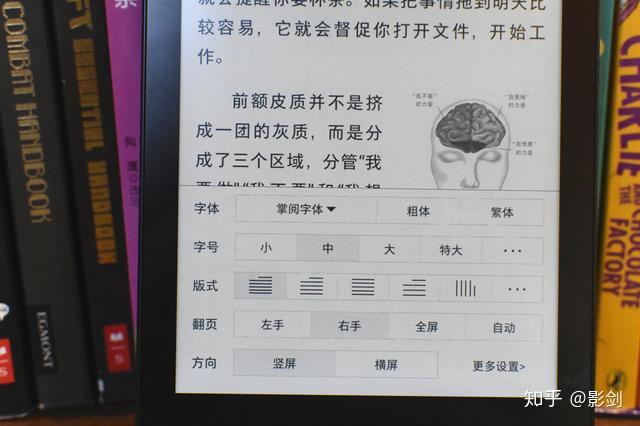 就会提醒你要怀余。如果把事情拖到明天比
较容易，它就会督促你打开文件，开始工
作。
前额皮质并不是挤
成一团的灰质，而是分
成了三个区域，分管“我
要做”“我不要”和“我想
“我不要”
的力量
“我要做”
的力量
“我想要”
的力量
字体 掌阅字体 粗体 繁体
字号 小 中 大 特大 ...
版式 ...
翻页 左手 右手 全屏 自动
方向 竖屏 横屏 更多设置>
COMBAT HANDBOOK
EGMONT
ESSENTIAL HANDBOOK
陶鹰○改写
CHARLIE
AND THE
CHOCOLATE
FACTORY
知乎 @影剑